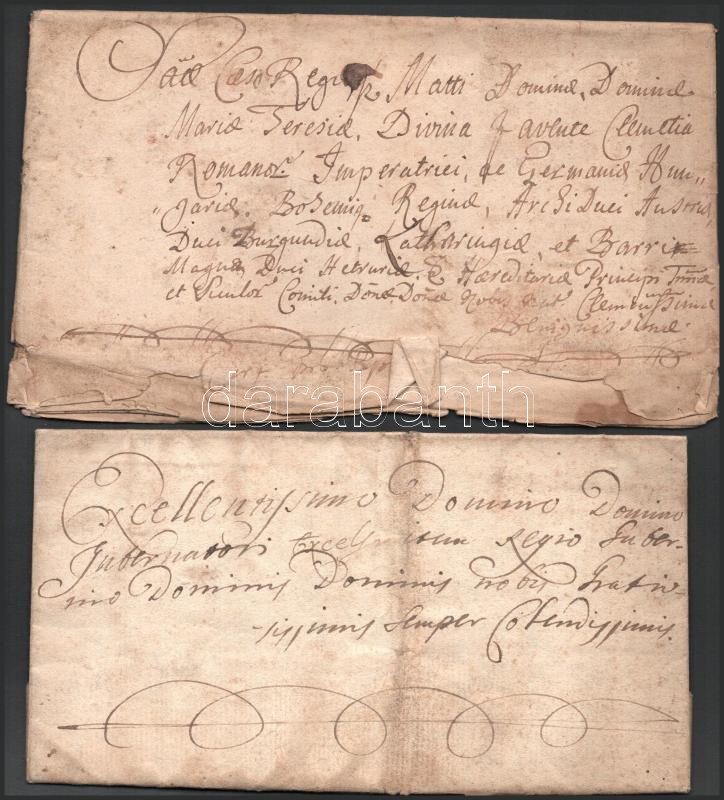 Sacae Caeso Regiae Matti Dominae, Dominae
Mariae Teresiae, Divina favente Clemetia
Romanor. Imperatrici, ac Germaniae Hun„
„gariae, Bohemiq Reginae, Archi Duci Austriae,
Duci Burgundiae, Latharingiae, et Barri
Magnae Duci Hetruriae, Haereditariae Principi Tnniae
et Siculor Comiti, Dnae Dnae Nobis Clementissimae
Benignissimae.
darabanth
Excellentissimo Domino Domino
Gubernatori Excelsoque Regio Guber-
nio Dominis Dominis nobis Gratio-
-sissimis semper Colendissimis.